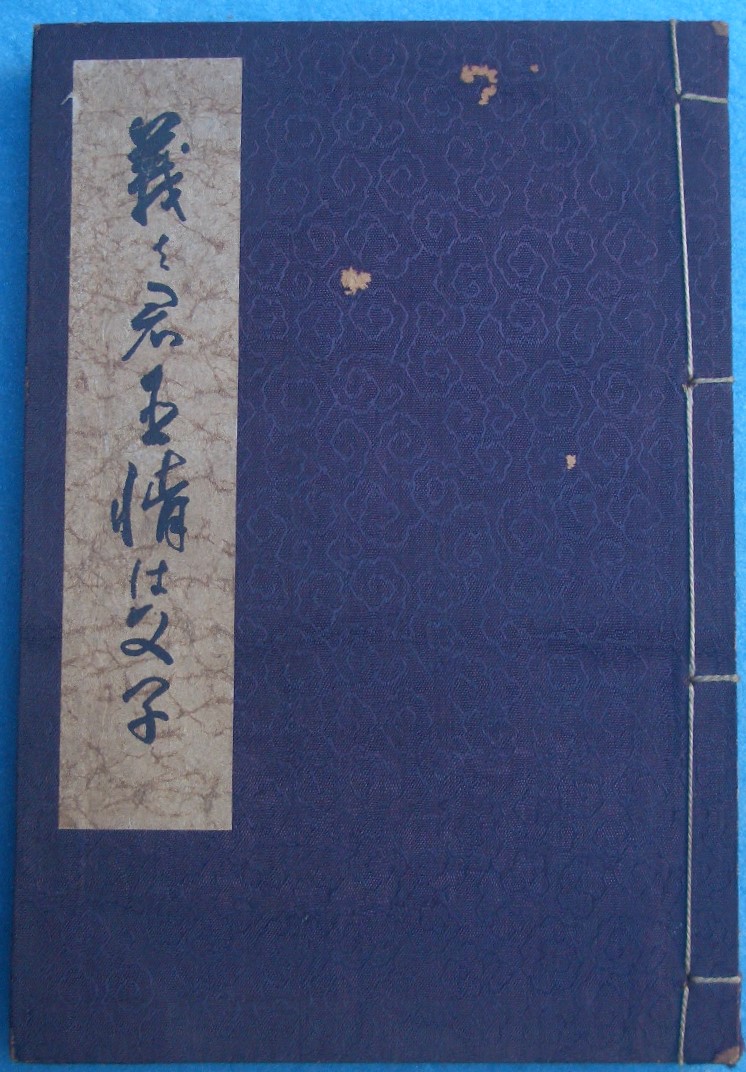 義は君臣情は父子